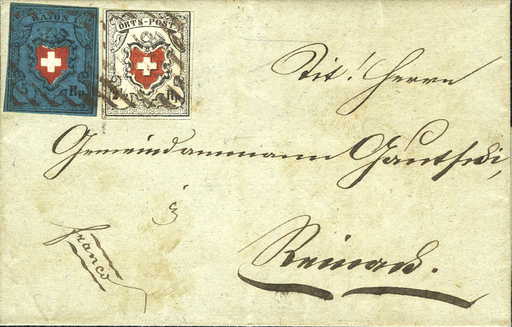 RAYON I.
5 Rp.
ORTS-POST
2½ Rp.
Tit! Herrn
Gemeindammann Gautschi,
in
Reinach.
franco